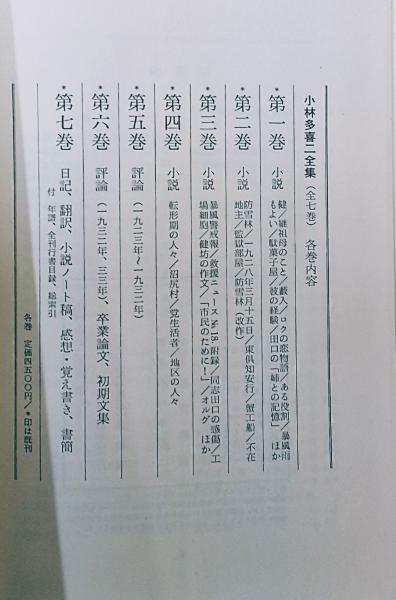 小林多喜二全集（全七巻） 各巻内容
*第一巻 小説 健／継祖母のこと／藪入／ロクの恋物語／ある役割／暴風雨
もよい／駄菓子屋／彼の経験／田口の「姉との記憶」 ほか
第二巻 小説 防雪林／一九二八年三月十五日／東倶知安行／蟹工船／不在
地主／監獄部屋／防雪林（改作）
*第三巻 小説 暴風警戒報／救援ニュースNo.18.附録／同志田口の感傷／工
場細胞／健坊の作文／「市民のために！」／オルグ ほか
*第四巻 小説 転形期の人々／沼尻村／党生活者／地区の人々
*第五巻 評論 （一九二三年～一九三二年）
*第六巻 評論 （一九三二年、三三年）、卒業論文、初期文集
*第七巻 日記、翻訳、小説ノート稿、感想・覚え書き、書簡
付 年譜、全刊行書目録、総索引
各巻 定価四五〇〇円／*印は既刊